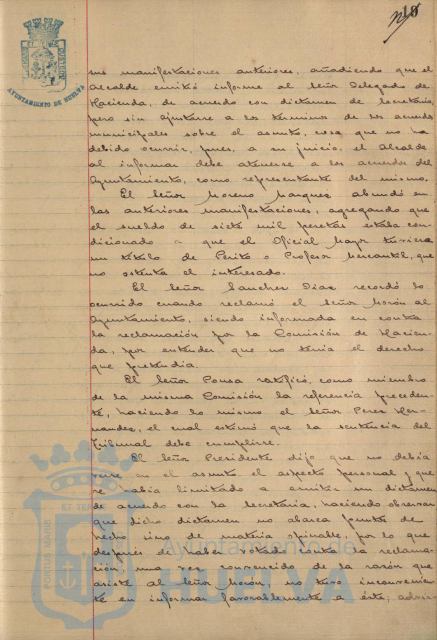 AYUNTAMIENTO DE HUELVA
sus manifestaciones anteriores, añadiendo que el
Alcalde emitió informe al Señor Delegado de
Hacienda, de acuerdo con dictamen de Secretaría,
pero sin ajustarse a los términos de los acuerdos
municipales sobre el asunto, cosa que no ha
debido ocurrir, pues, a su juicio, el Alcalde
al informar debe atenerse a los acuerdos del
Ayuntamiento, como representante del mismo.
El Señor Moreno Marquez abundó en
las anteriores manifestaciones, agregando que
el sueldo de siete mil pesetas estaba con-
dicionado a que el Oficial Mayor tuviera
un título de Perito o Profesor Mercantil, que
no ostenta el interesado.
El Señor Sanchez Diaz recordó lo
ocurrido cuando reclamó el Señor Morón al
Ayuntamiento, siendo informada en contra
la reclamación por la Comisión de Hacien-
da, por entender que no tenia el derecho
que pretendia.
El Señor Pousa ratificó, como miembro
de la misma Comisión la referencia preceden-
te, haciendo lo mismo el Señor Perez Her-
nandez, el cual estimó que la sentencia del
Tribunal debe cumplirse.
El Señor Presidente dijo que no debia
verse en el asunto el aspecto personal y que
se habia limitado a emitir un dictamen
de acuerdo con la Secretaria, haciendo observar
que dicho dictamen no abarca puntos de
hecho sino de materia opinable, por lo que
después de haber votado contra la reclama-
ción, una vez convencido de la razón que
asiste al Señor Morón, no tuvo inconvenien-
te en informar favorablemente a éste,
Ayuntamiento de
HUELVA